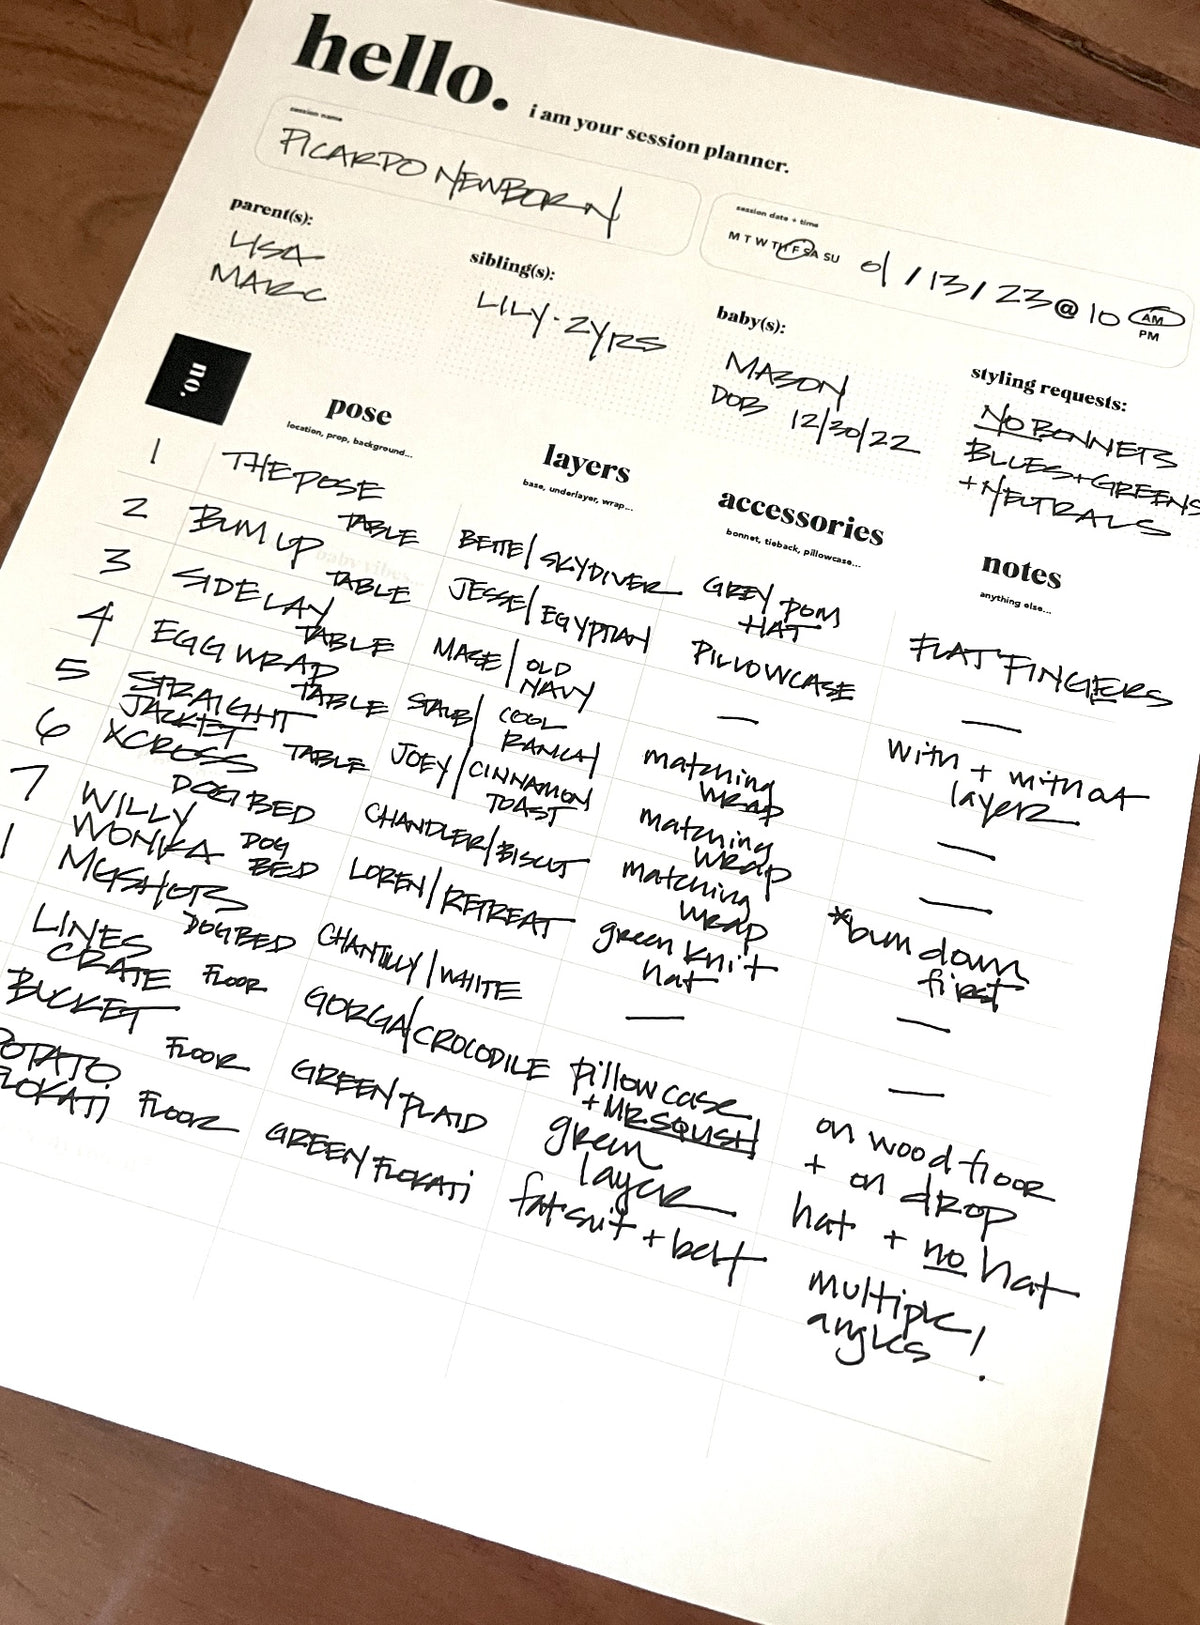 hello.
i am your session planner.
session name
PICARDO NEWBORN
session date + time
M T W TH F SA SU 01/13/23 @ 10 AM
PM
parent(s):
LISA
MARC
sibling(s):
LILY - 2YRS
baby(s):
MASON
DOB 12/30/22
styling requests:
NO BONNETS
BLUES + GREENS
+ NEUTRALS
no.
pose
location, prop, background...
layers
base, underlayer, wrap...
accessories
bonnet, tieback, pillowcase...
notes
anything else...
1 THE POSE TABLE BETTE/SKYDIVER GREY POM HAT FLAT FINGERS
2 BUM UP TABLE JESSE/EGYPTIAN PILLOWCASE —
3 SIDE LAY TABLE MAGE/OLD NAVY — with + without layer
4 EGG WRAP TABLE STALB/COOL RANCH matching wrap —
5 STRAIGHT JACKET TABLE JOEY/CINNAMON TOAST matching wrap —
6 XCROSS DOG BED CHANDLER/BISCUT matching wrap *bum down first
7 WILLY WONKA DOG BED LOREN/RETREAT green knit hat —
1 MUGSHOTS DOG BED CHANTILLY/WHITE — —
LINES CRATE FLOOR GORGA/CROCODILE pillowcase + MR SQUSH on wood floor + on drop
BUCKET FLOOR GREEN PLAID green layer hat + no hat
POTATO FLOKATI FLOOR GREEN FLOKATI fat suit + belt multiple angles!